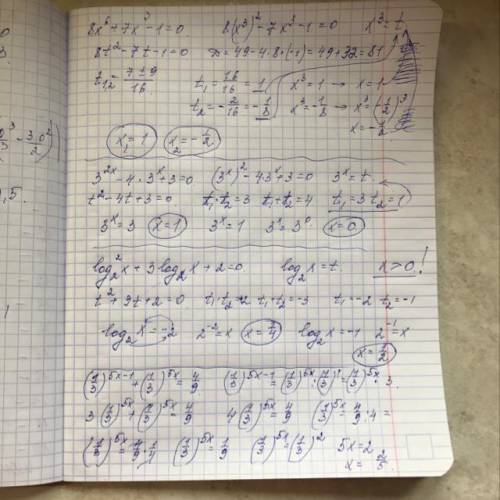 8x⁶+7x³-1=0. 8(x³)²-7x³-1=0 x³=t
8t²-7t-1=0 D=49-4·8·(-1)=49+32=81
t₁,₂=7±9/16 t₁=16/16=1 x³=1 → x=1
t₂=-2/16=-1/8 x³=-1/8 → x³=(-1/2)³
x=-1/2
x₁=1 x₂=-1/2
3²ˣ-4·3ˣ+3=0 (3ˣ)²-43ˣ+3=0 3ˣ=t
t²-4t+3=0 t₁·t₂=3 t₁+t₂=4 t₁=3 t₂=1
3ˣ=3 x=1 3ˣ=1 3ˣ=3⁰ x=0
log₂²x+3log₂x+2=0. log₂x=t. x>0!
t²+3t+2=0 t₁·t₂=2 t₁+t₂=-3 t₁=-2 t₂=-1
log₂x=-2 2⁻²=x x=1/4 log₂x=-1 2⁻¹=x
x=1/2
(1/3)⁵ˣ⁻¹+(1/3)⁵ˣ=4/9 (1/3)⁵ˣ⁻¹=(1/3)⁵ˣ:(1/3)¹=(1/3)⁵ˣ·3
3(1/3)⁵ˣ+(1/3)⁵ˣ=4/9 4(1/3)⁵ˣ=4/9 (1/3)⁵ˣ=4/9:4=
(1/3)⁵ˣ=4/9·1/4 (1/3)⁵ˣ=1/9 (1/3)⁵ˣ=(1/3)² 5x=2
x=2/5